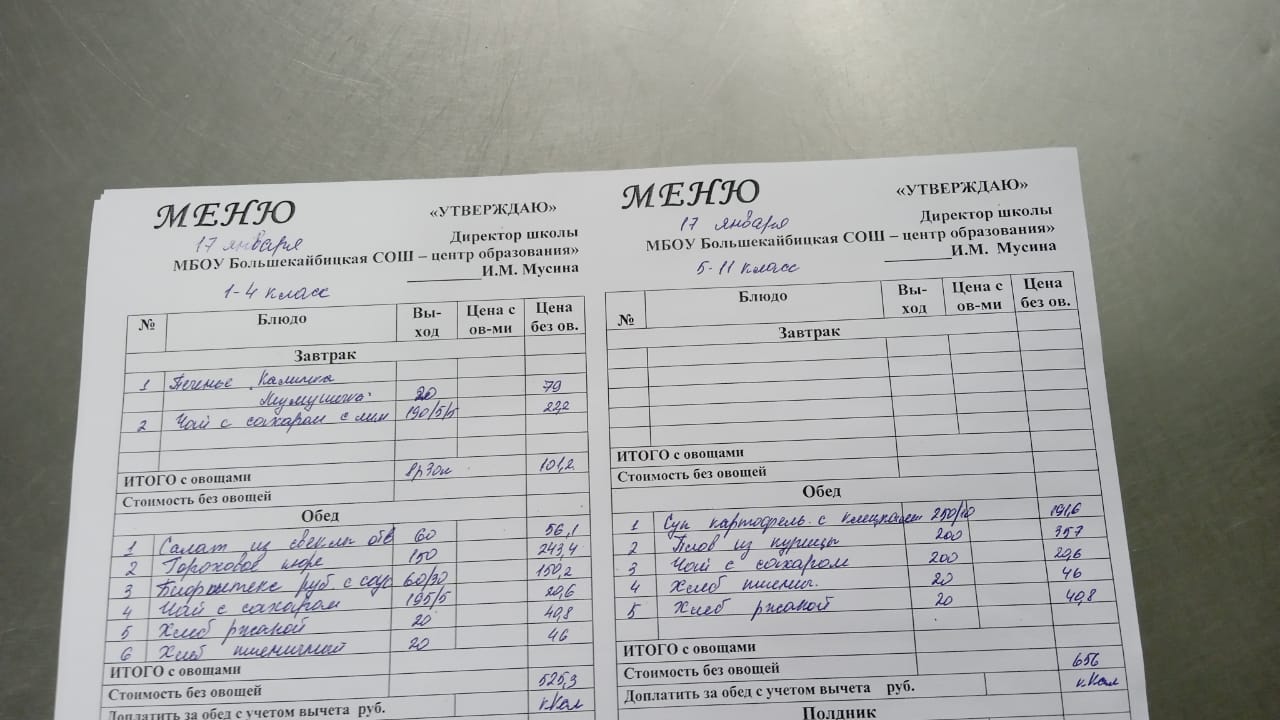 МЕНЮ
«УТВЕРЖДАЮ»
17 января
Директор школы
МБОУ Большекайбицкая СОШ – центр образования»
__________И.М. Мусина
1-4 класс
№ Блюдо Вы-ход Цена с ов-ми Цена без ов.
Завтрак
1 Печенье Калинка
20 79
2 Чай с сахаром с лим 190/5/5 22,2
ИТОГО с овощами 8р30к 101,2
Стоимость без овощей
Обед
1 Салат из свеклы отв 60 56,1
2 Гороховое пюре 150 243,4
3 Бифштекс руб. с соус 60/30 150,2
4 Чай с сахаром 195/5 20,6
5 Хлеб ржаной 20 40,8
6 Хлеб пшеничный 20 46
ИТОГО с овощами
Стоимость без овощей 525,3
Доплатить за обед с учетом вычета руб. кКал
МЕНЮ
«УТВЕРЖДАЮ»
17 января
Директор школы
МБОУ Большекайбицкая СОШ – центр образования»
________И.М. Мусина
5-11 класс
№ Блюдо Вы-ход Цена с ов-ми Цена без ов.
Завтрак
ИТОГО с овощами
Стоимость без овощей
Обед
1 Суп картофель. с клецками 250/10 191,6
2 Плов из курицы 200 357
3 Чай с сахаром 200 20,6
4 Хлеб пшенич. 20 46
5 Хлеб ржаной 20 40,8
ИТОГО с овощами
Стоимость без овощей 656
Доплатить за обед с учетом вычета руб. кКал
Полдник